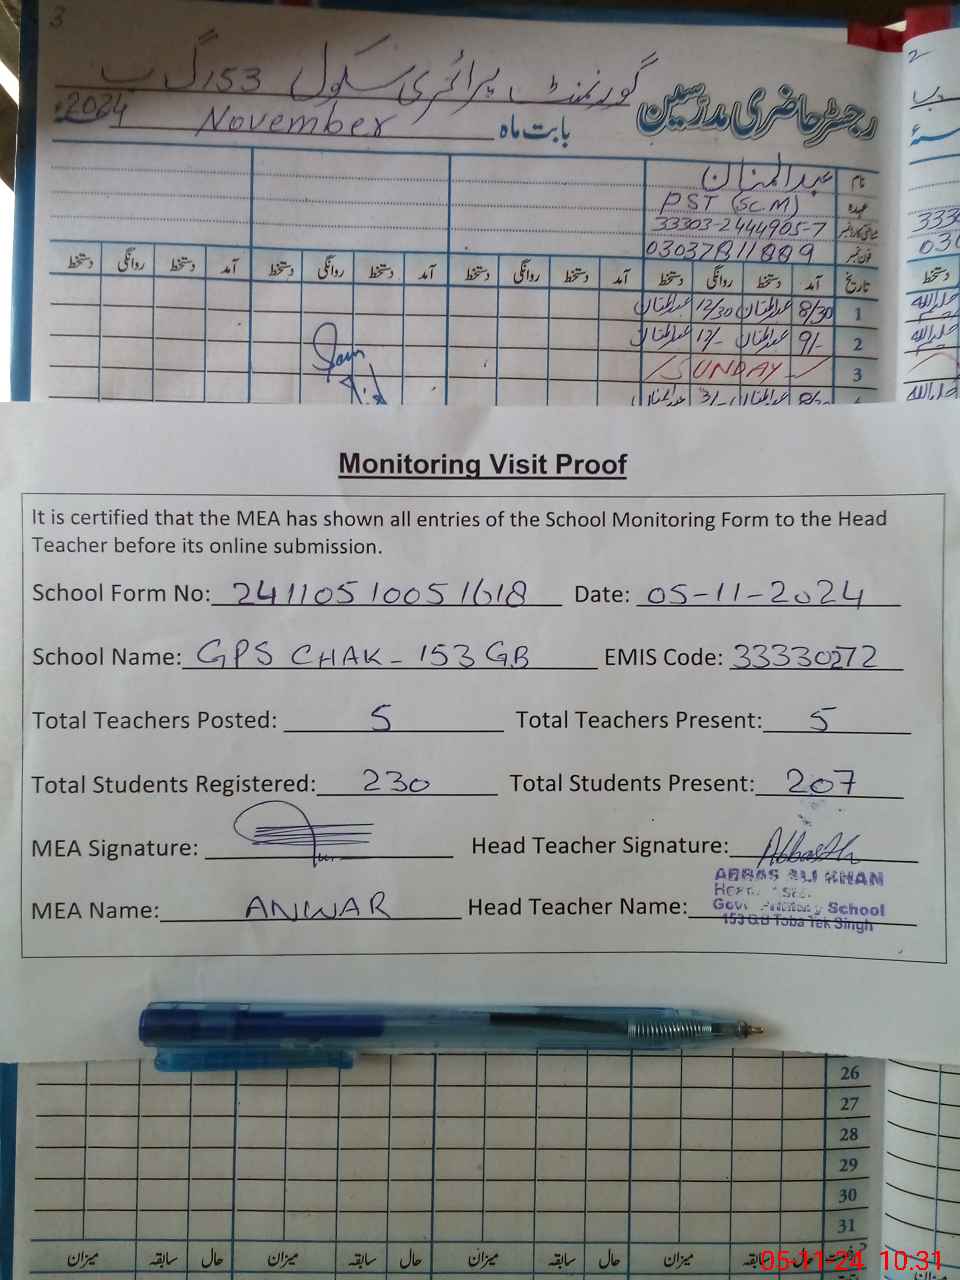 3
گورنمنٹ پرائمری سکول 153 گ ب
رجسٹر حاضری مدرسین
بابت ماہ November 2024ء
نام عبدالمنان
عہدہ PST (SC.M)
33303-2444905-7
فون نمبر 03037811889
تاریخ آمد دستخط روانگی دستخط آمد دستخط روانگی دستخط آمد دستخط روانگی دستخط آمد دستخط روانگی دستخط
1 8/30 عبدالمنان 12/30 عبدالمنان
2 9/- عبدالمنان 12/- عبدالمنان
3 SUNDAY
Monitoring Visit Proof
It is certified that the MEA has shown all entries of the School Monitoring Form to the Head
Teacher before its online submission.
School Form No: 24110510051618 Date: 05-11-2024
School Name: GPS CHAK - 153 GB EMIS Code: 33330272
Total Teachers Posted: 5 Total Teachers Present: 5
Total Students Registered: 230 Total Students Present: 207
MEA Signature: Head Teacher Signature:
MEA Name: ANWAR Head Teacher Name:
ABBAS ALI KHAN
Govt Primary School
153 GB Toba Tek Singh
26
27
28
29
30
31
حال سابقہ میزان حال سابقہ میزان حال سابقہ میزان حال سابقہ میزان
05-11-24 10.31